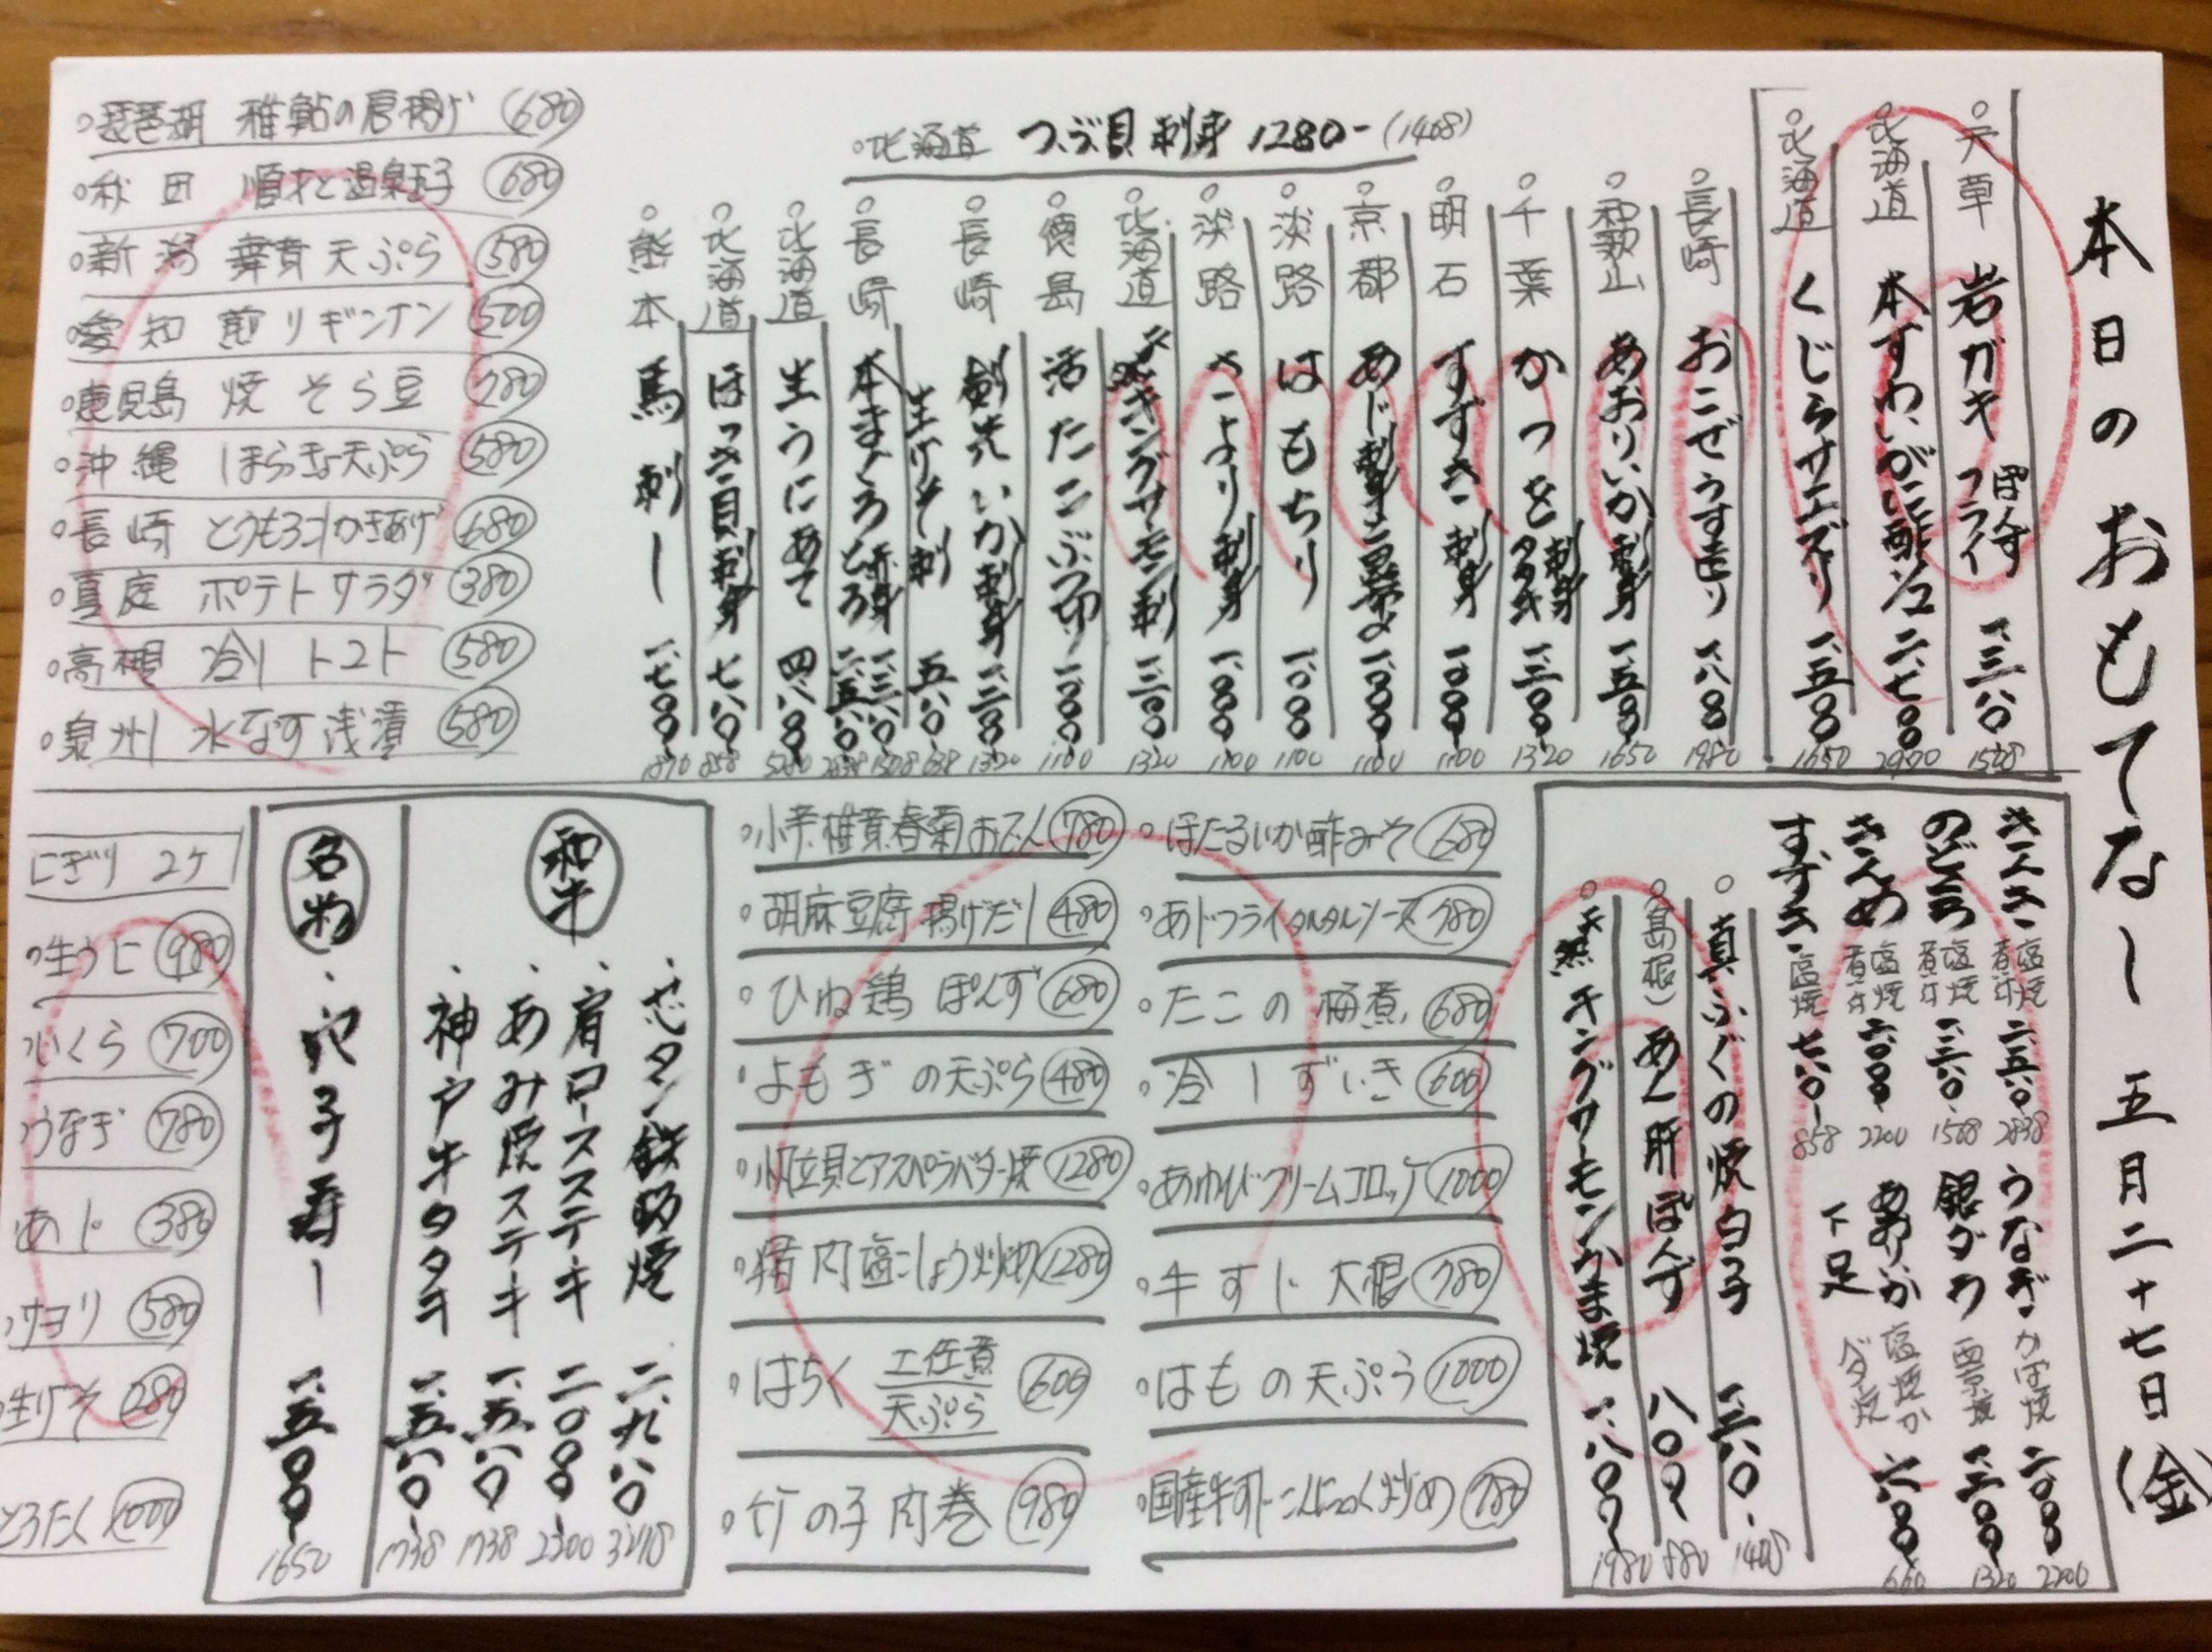 本日のおもてなし 五月二十七日(金)
天草 岩ガキ ぽん酢 フライ 一、三八〇 1518
北海道 本ずわいがに酢 二、七〇〇 2970
北海道 くじらサエズリ 一、五〇〇 1650
長崎 おこぜうす造り 一、八〇〇 1980
和歌山 あおりいか刺身 一、五〇〇 1650
千葉 かつを 刺身 タタキ 一、二〇〇 1320
明石 すずき刺身 一、〇〇〇 1100
京都 あじ刺身 一、〇〇〇 1100
淡路 はもちり 一、〇〇〇 1100
淡路 さより刺身 一、〇〇〇 1100
北海道 キングサーモン刺 一、二〇〇 1320
徳島 活たこぶつ切り 一、〇〇〇 1100
長崎 剣先いか刺身 一、二〇〇 1320
生げそ刺 五八〇 638
長崎 本まぐろ 赤身 一、三八〇 1518
とろ 二、五八〇 2838
北海道 生うにあて 四、八〇〇 5280
北海道 ほっき貝刺身 七八〇 858
熊本 馬刺し 一、七〇〇 1870
北海道 つぶ貝刺身 1280- (1408)
琵琶湖 稚鮎の唐揚げ 680
秋田 順才と温泉玉子 680
新潟 舞茸天ぷら 580
愛知 煎りギンナン 500
鹿児島 焼そら豆 780
沖縄 しまらっきょ天ぷら 580
長崎 とうもろこしかきあげ 680
真庭 ポテトサラダ 380
高槻 冷しトマト 580
泉州 水なす浅漬 580
きんき 塩焼 煮付 二、五八〇 2838
のどぐろ 塩焼 煮付 一、三八〇 1518
塩焼 煮付 二、〇〇〇 2200
すずき 塩焼 七八〇 858
うなぎ かば焼 二、〇〇〇 2200
銀ダラ 西京焼 一、二〇〇 1320
あおりいか下足 塩焼か バタ焼 六〇〇 660
真ふぐの焼白子 一、二八〇- 1408
(島根) あん肝ぽんず 八〇〇- 880
キングサーモンかま焼 一、八〇〇- 1980
ほたるいか酢みそ 680
あじフライタルタルソース 780
たこの梅煮 680
冷しずいき 600
あわびクリームコロッケ 1000
牛すじ大根 780
はもの天ぷら 1000
国産牛すじこんにゃく炒め 780
小芋椎茸春菊おでん 780
胡麻豆腐揚げだし 480
ひね鶏ぽんず 680
よもぎの天ぷら 480
帆立貝とアスパラバター焼 1280
猪肉塩こしょう炒め 1280
はちく 土佐煮 天ぷら 600
竹の子肉巻 980
和牛
タン鉄砲焼 二、九八〇 3278
肩ロースステーキ 二、〇〇〇 2200
あみ焼ステーキ 一、五八〇 1738
神戸牛タタキ 一、五八〇 1738
名物
穴子寿し 一、五〇〇 1650
にぎり 2ケ
生うに 980
いくら 700
うなぎ 780
あじ 380
サヨリ 580
生げそ 280
とろたく 1000